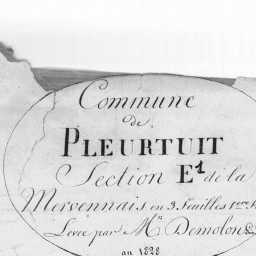 Commune
de
PLEURTUIT
Section E¹ de la
Mervennais en 3 Feuilles 1ere
Levée par Mr Demolon
an 1828